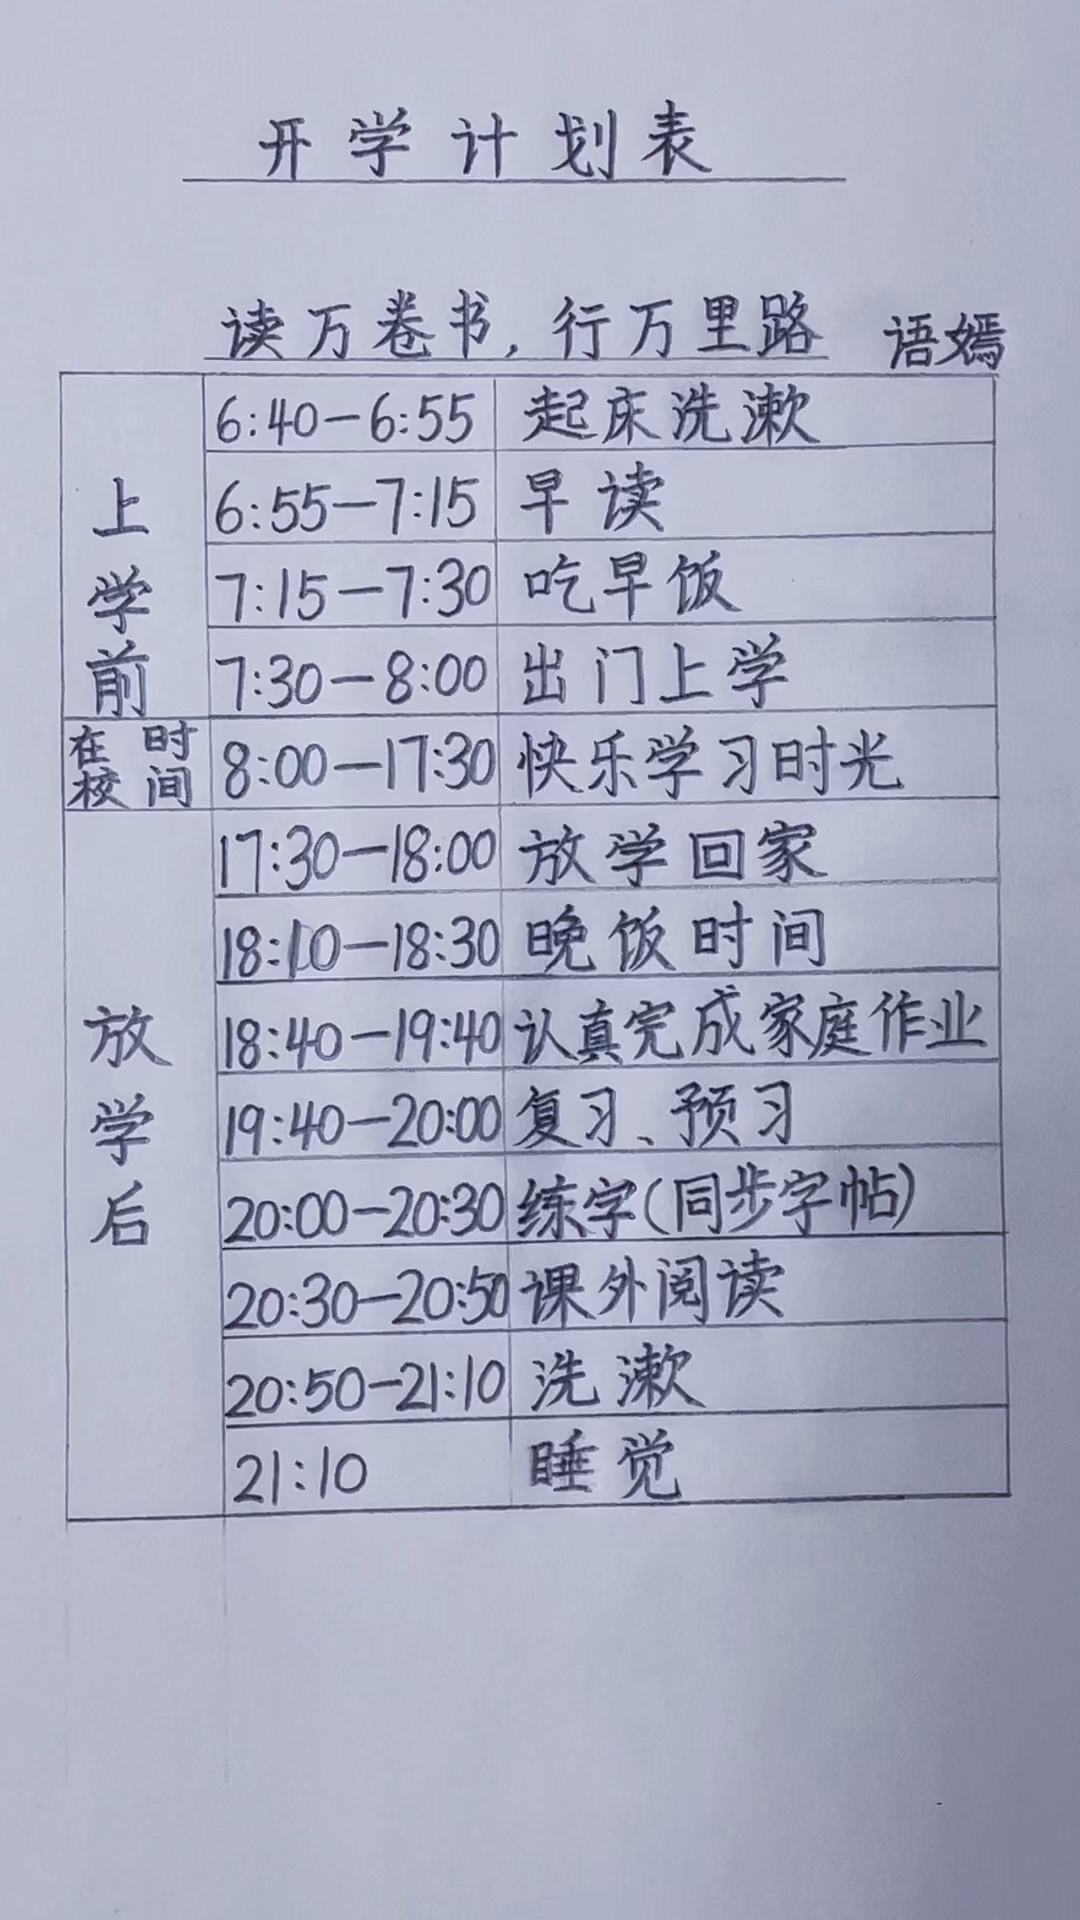 开学计划表
读万卷书,行万里路 语嫣
上学前
6:40—6:55 起床洗漱
6:55—7:15 早读
7:15—7:30 吃早饭
7:30—8:00 出门上学
在校时间 8:00—17:30 快乐学习时光
放学后
17:30—18:00 放学回家
18:10—18:30 晚饭时间
18:40—19:40 认真完成家庭作业
19:40—20:00 复习、预习
20:00—20:30 练字(同步字帖)
20:30—20:50 课外阅读
20:50—21:10 洗漱
21:10 睡觉